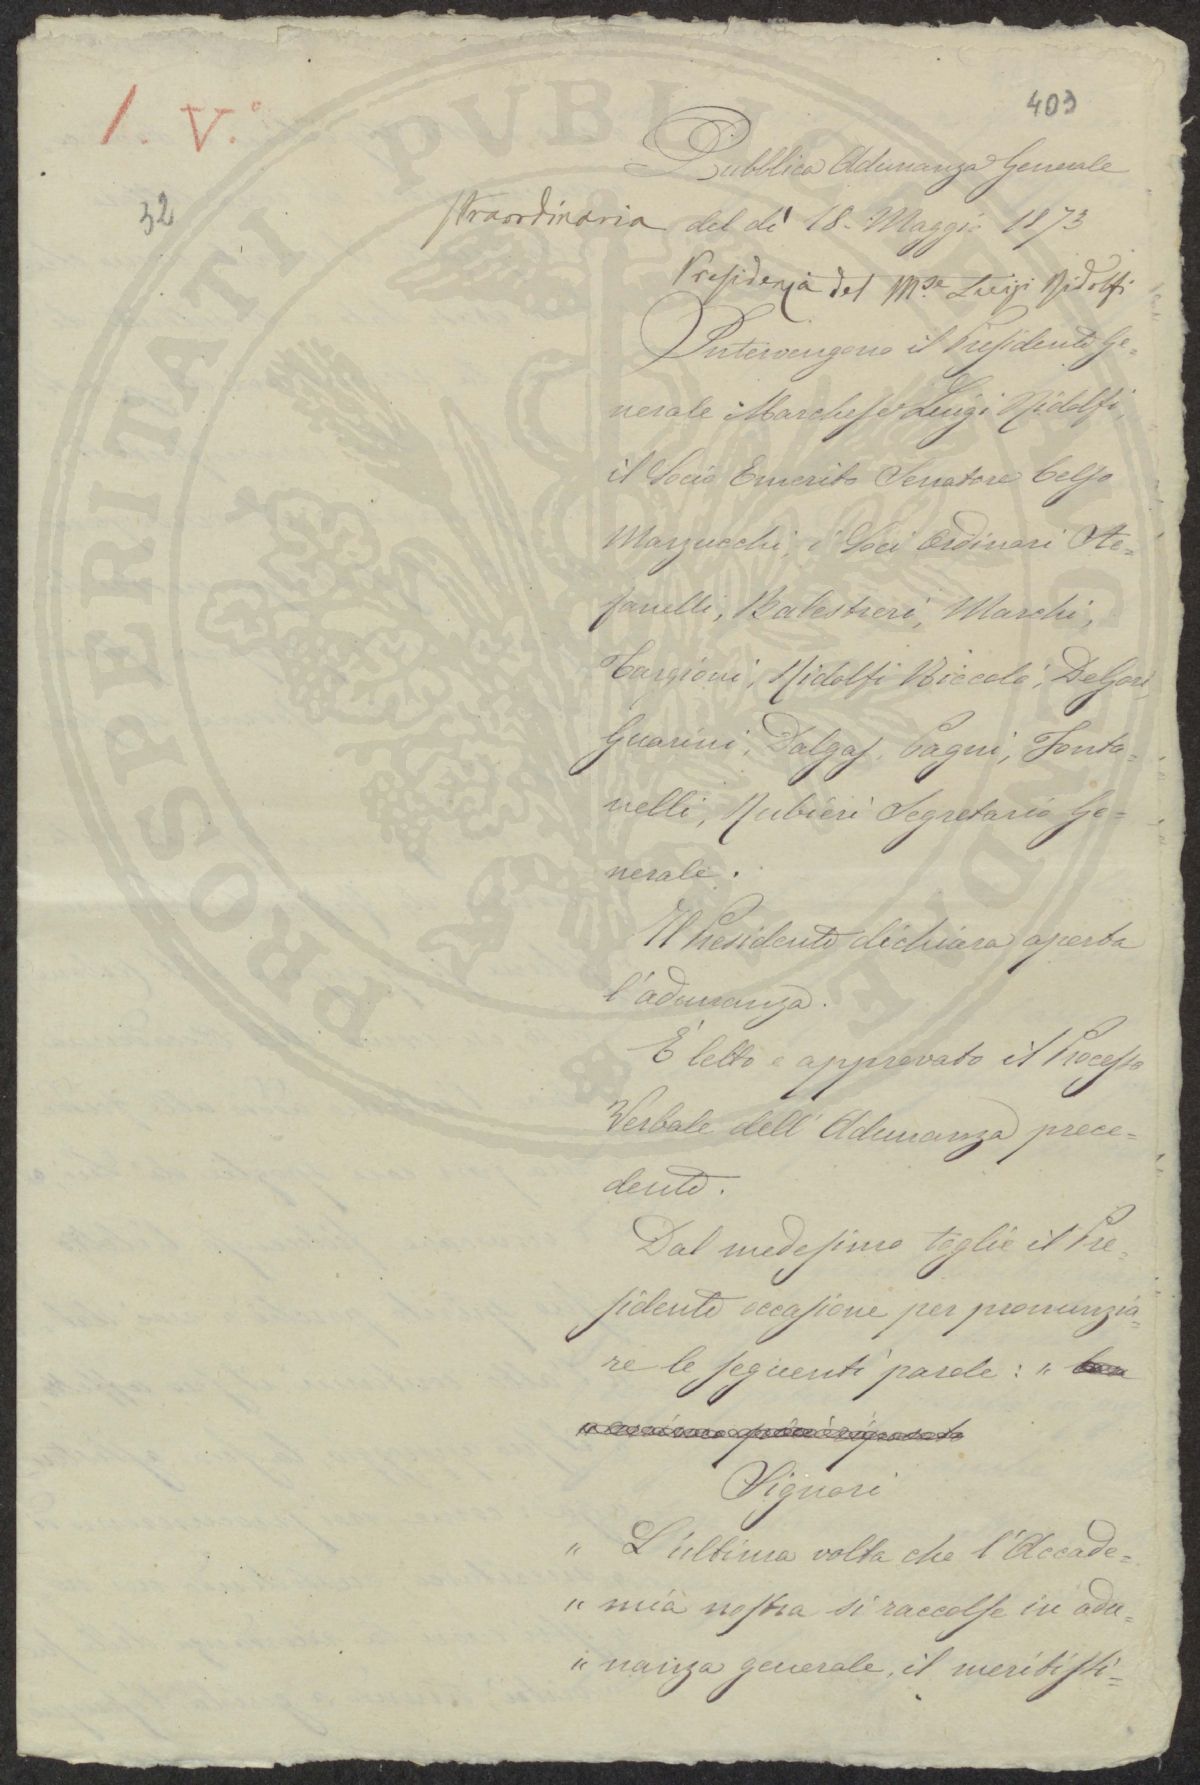 1. V.°
403
32
Pubblica Adunanza Generale
straordinaria del dì 18. Maggio 1873
Presidenza del Mse Luigi Ridolfi
Intervengono il Presidente Ge=
nerale Marchese Luigi Ridolfi,
il Socio Emerito Senatore Celso
Marzucchi, i Soci Ordinari Ste=
fanelli, Balestreri, Marchi,
Targioni, Ridolfi Niccolò, DeGori,
Guarini, Dalgas, Cagni, Fonta=
nelli, Rubieri Segretario Ge=
nerale.
Il Presidente dichiara aperta
l'adunanza.
È letto e approvato il Processo
Verbale dell'Adunanza prece=
dente.
Dal medesimo toglie il Pre=
sidente occasione per pronunzia=
re le seguenti parole: "
Signori
" L'ultima volta che l'Accade=
" mia nostra si raccolse in adu=
" nanza generale, il meritissi=
PROSPERITATI PVBLICAE